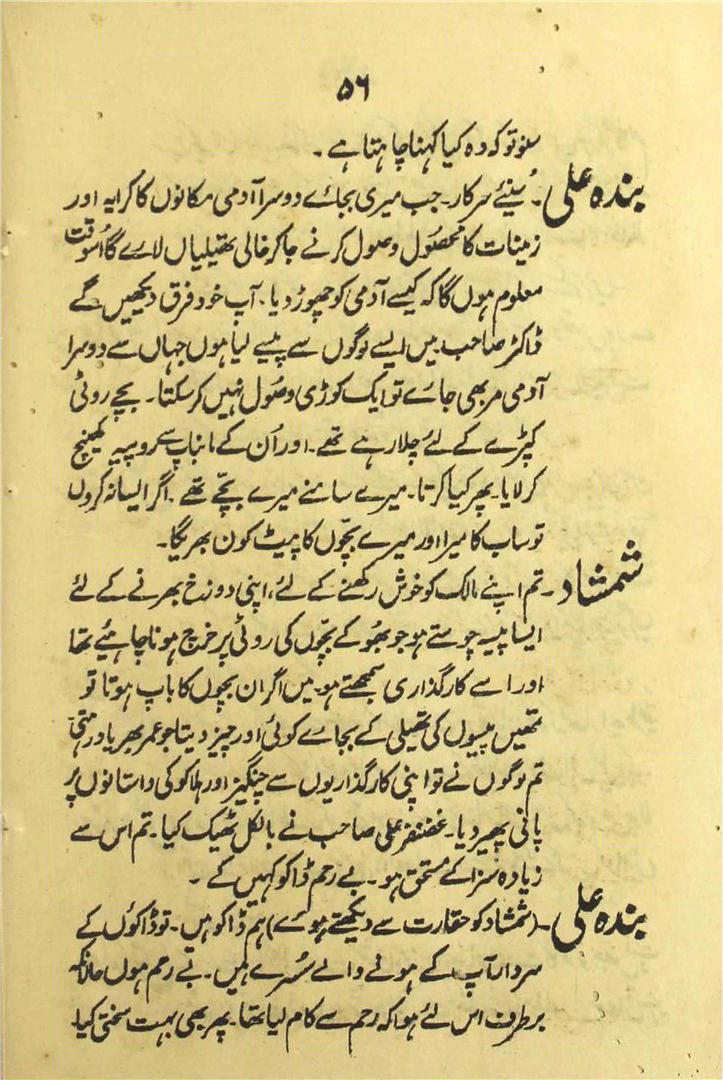 ۵۶
سنو تو کہ وہ کیا کہنا چاہتا ہے۔
بندہ علی۔ سُنیئے سرکار۔ جب میری بجائے دوسرا آدمی مکانوں کا کرایہ اور
زمینات کا محصُول وصول کرنے جا کر خالی تھیلیاں لائے گا اُسوقت
معلوم ہوں گا کہ کیسے آدمی کو چھوڑ دیا۔ آپ خود فرق دیکھیں گے
ڈاکٹر صاحب۔ میں ایسے لوگوں سے پیسے لیا ہوں جہاں سے دوسرا
آدمی مر بھی جائے تو ایک کوڑی وصُول نہیں کر سکتا۔ بچے روٹی
کپڑے کے لئے چلا رہے تھے۔ اور اُن کے مانباپ سے روپیہ کھینچ
کر لایا۔ پھر کیا کرتا۔ میرے سامنے میرے بچّے تھے۔ اگر ایسا نہ کروں
تو ساب کا میرا اور میرے بچّوں کا پیٹ کون بھریگا۔
شمشاد۔ تم اپنے مالک کو خوش رکھنے کے لئے، اپنی دوزخ بھرنے کے لئے
ایسا پیسہ چوستے ہو جو بھُوکے بچّوں کی روٹی پر خرچ ہونا چاہئیے تھا
اور اسے کارگذاری سمجھتے ہو۔ میں اگر ان بچوں کا باپ ہوتا تو
تمھیں پیسوں کی تھیلی کے بجائے کوئی اور چیز دیتا جو عمر بھر یاد رہتی
تم لوگوں نے تو اپنی کارگذاریوں سے چنگیز اور ہلاکو کی داستانوں پر
پانی پھیر دیا۔ غضنفر علی صاحب نے بالکل ٹھیک کیا۔ تم اس سے
زیادہ سزا کے مستحق ہو۔ بے رحم ڈاکو کہیں کے۔
بندہ علی۔ (شمشاد کو حقارت سے دیکھتے ہوئے) ہم ڈاکو ہیں۔ تو ڈاکوں کے
سردار آپ کے ہونے والے سُسرے ہیں۔ بے رحم ہوں حالانکہ
برطرف اس لئے ہوا کہ رحم سے کام لیا تھا۔ پھر بھی بہت سختی کیا۔